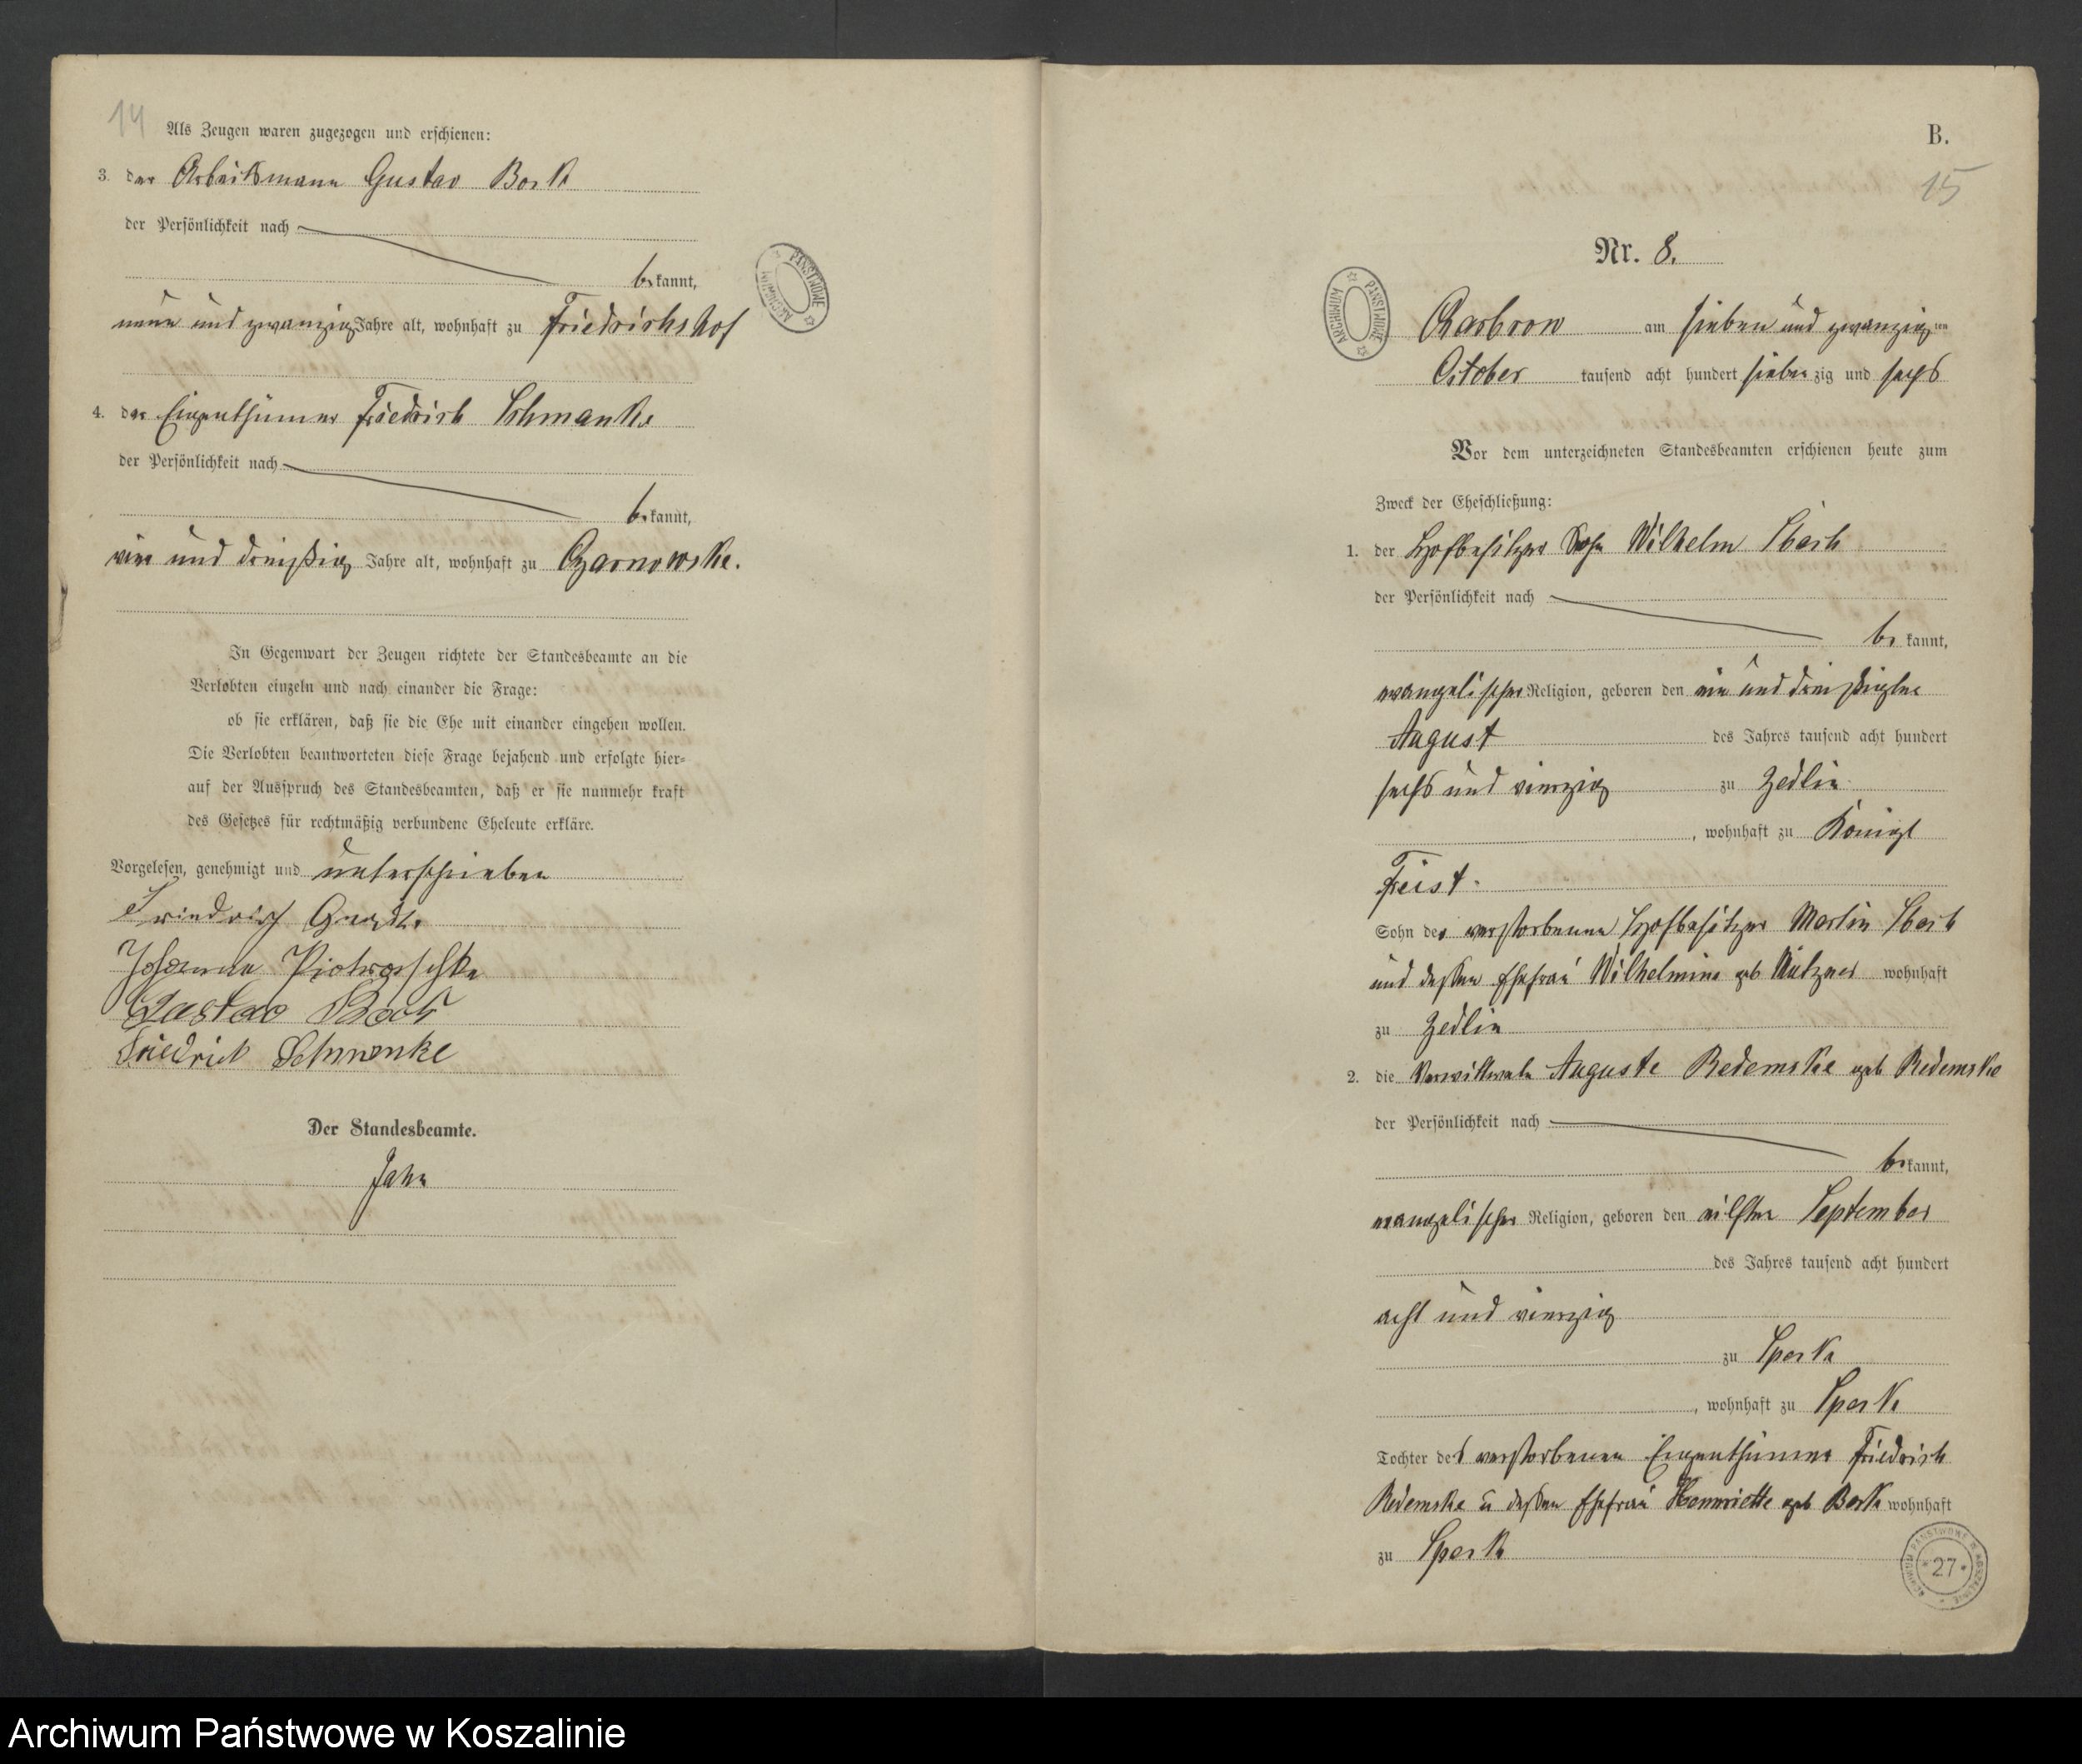 14
Als Zeugen waren zugezogen und erschienen:
3. der Arbeitsmann Gustav Bork
der Persönlichkeit nach
bekannt,
neun und zwanzig Jahre alt, wohnhaft zu Friedrichshof
4. der Eigenthümer Friedrich Schmanke
der Persönlichkeit nach
bekannt,
vier und dreißig Jahre alt, wohnhaft zu Czarnowske.
In Gegenwart der Zeugen richtete der Standesbeamte an die
Verlobten einzeln und nach einander die Frage:
ob sie erklären, daß sie die Ehe mit einander eingehen wollen.
Die Verlobten beantworteten diese Frage bejahend und erfolgte hier-
auf der Ausspruch des Standesbeamten, daß er sie nunmehr kraft
des Gesetzes für rechtmäßig verbundene Eheleute erkläre.
Vorgelesen, genehmigt und unterschrieben
Friedrich
Johanna
Gustav Bork
Friedrich Schmanke
Der Standesbeamte.
Jahn
B.
15
Nr. 8.
Charbrow am sieben und zwanzigten
October tausend acht hundert siebenzig und sechs
Vor dem unterzeichneten Standesbeamten erschienen heute zum
Zweck der Eheschließung:
1. der Hofbesitzer Sohn Wilhelm
der Persönlichkeit nach
bekannt,
evangelischer Religion, geboren den ein und dreißigten
August des Jahres tausend acht hundert
sechs und vierzig zu Zedlin
, wohnhaft zu Königl
Freist.
Sohn des verstorbenen Hofbesitzer Martin
und dessen Ehefrau Wilhelmine geb wohnhaft
zu Zedlin
2. die Verwittwete Auguste Redemske geb Redemske
der Persönlichkeit nach
bekannt,
evangelischer Religion, geboren den eilften September
des Jahres tausend acht hundert
acht und vierzig
zu Speck
, wohnhaft zu Speck
Tochter des verstorbenen Eigenthümer Friedrich
Redemske u dessen Ehefrau Henriette geb Bork wohnhaft
zu Speck
ARCHIWUM PAŃSTWOWE
ARCHIWUM PAŃSTWOWE
ARCHIWUM PAŃSTWOWE W KOSZALINIE
*27*
Archiwum Państwowe w Koszalinie